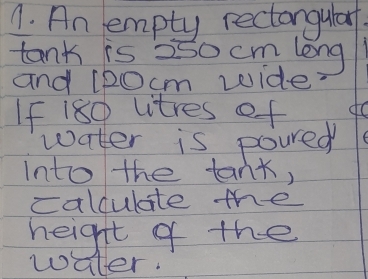 1. An empty rectangular
tank is 250 cm long
and 120cm wide.
If 180 litres of
water is poured
into the tank,
calculate the
height of the
water.